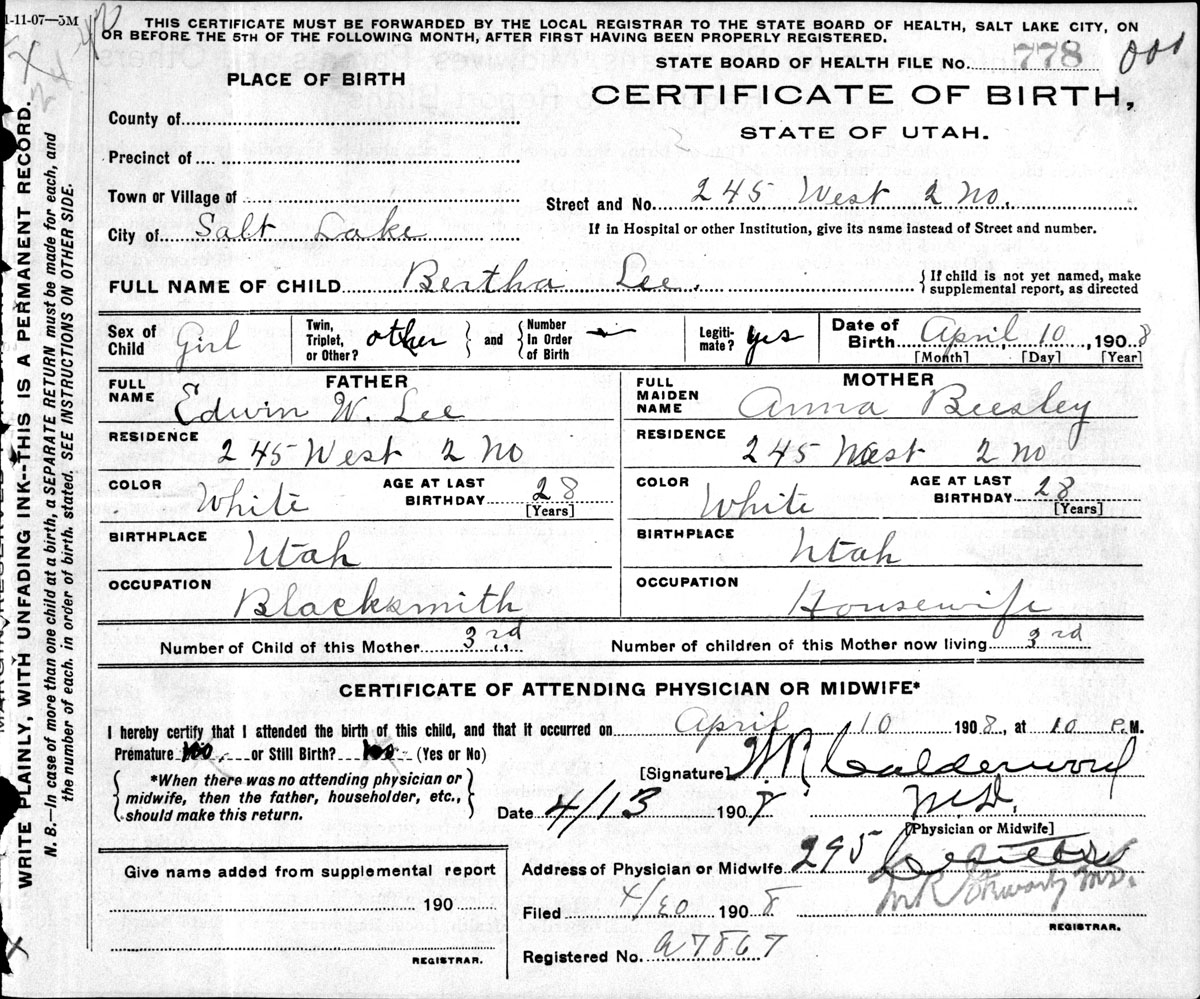 1-11-07—5M
THIS CERTIFICATE MUST BE FORWARDED BY THE LOCAL REGISTRAR TO THE STATE BOARD OF HEALTH, SALT LAKE CITY, ON
OR BEFORE THE 5TH OF THE FOLLOWING MONTH, AFTER FIRST HAVING BEEN PROPERLY REGISTERED.
STATE BOARD OF HEALTH FILE No. 778
PLACE OF BIRTH
CERTIFICATE OF BIRTH,
STATE OF UTAH.
County of
Precinct of
Town or Village of
Street and No. 245 West 2 No.
City of Salt Lake
If in Hospital or other Institution, give its name instead of Street and number.
FULL NAME OF CHILD Bertha Lee.
{If child is not yet named, make
supplemental report, as directed
Sex of Child Girl
Twin, Triplet, or Other? other } and { Number In Order of Birth —
Legiti-mate? yes
Date of Birth April 10, 1908
[Month] [Day] [Year]
FATHER
FULL NAME Edwin W. Lee
RESIDENCE 245 West 2 No
COLOR White
AGE AT LAST BIRTHDAY 28
[Years]
BIRTHPLACE Utah
OCCUPATION Blacksmith
MOTHER
FULL MAIDEN NAME Anna Beesley
RESIDENCE 245 West 2 No
COLOR White
AGE AT LAST BIRTHDAY 28
[Years]
BIRTHPLACE Utah
OCCUPATION Housewife
Number of Child of this Mother 3rd
Number of children of this Mother now living 3rd
CERTIFICATE OF ATTENDING PHYSICIAN OR MIDWIFE*
I hereby certify that I attended the birth of this child, and that it occurred on April 10 1908, at 10 P.M.
Premature or Still Birth? (Yes or No)
{ *When there was no attending physician or
midwife, then the father, householder, etc.,
should make this return. }
[Signature] W.R. Calderwood
M.D.
[Physician or Midwife]
Date 4/13 1908
Address of Physician or Midwife 295
Give name added from supplemental report
190
REGISTRAR.
Filed 4/20 1908
REGISTRAR.
Registered No. a7867
WRITE PLAINLY, WITH UNFADING INK--THIS IS A PERMANENT RECORD.
N. B.—In case of more than one child at a birth, a SEPARATE RETURN must be made for each, and
the number of each, in order of birth, stated. SEE INSTRUCTIONS ON OTHER SIDE.